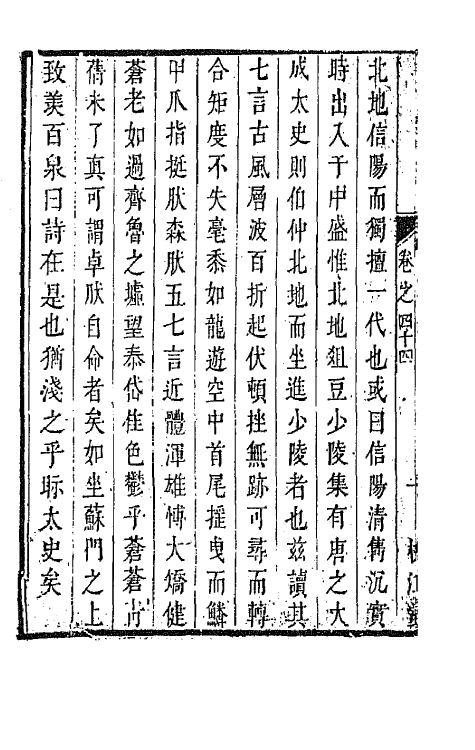 卷之四十四
北地信陽而獨擅一代也或曰信陽清雋沉實
時出入于中盛惟北地俎豆少陵集有唐之大
成太史則伯仲北地而坐進少陵者也兹讀其
七言古風層波百折起伏頓挫無跡可尋而轉
合矩度不失毫黍如龍遊空中首尾揺曳而鱗
甲爪指挺肰森肰五七言近體渾雄愽大矯健
蒼老如過齊魯之墟望泰岱佳色鬱乎蒼蒼靑
蒨未了真可謂卓肰自命者矣如坐蘇門之上
致羨百泉曰詩在是也猶淺之乎眎太史矣